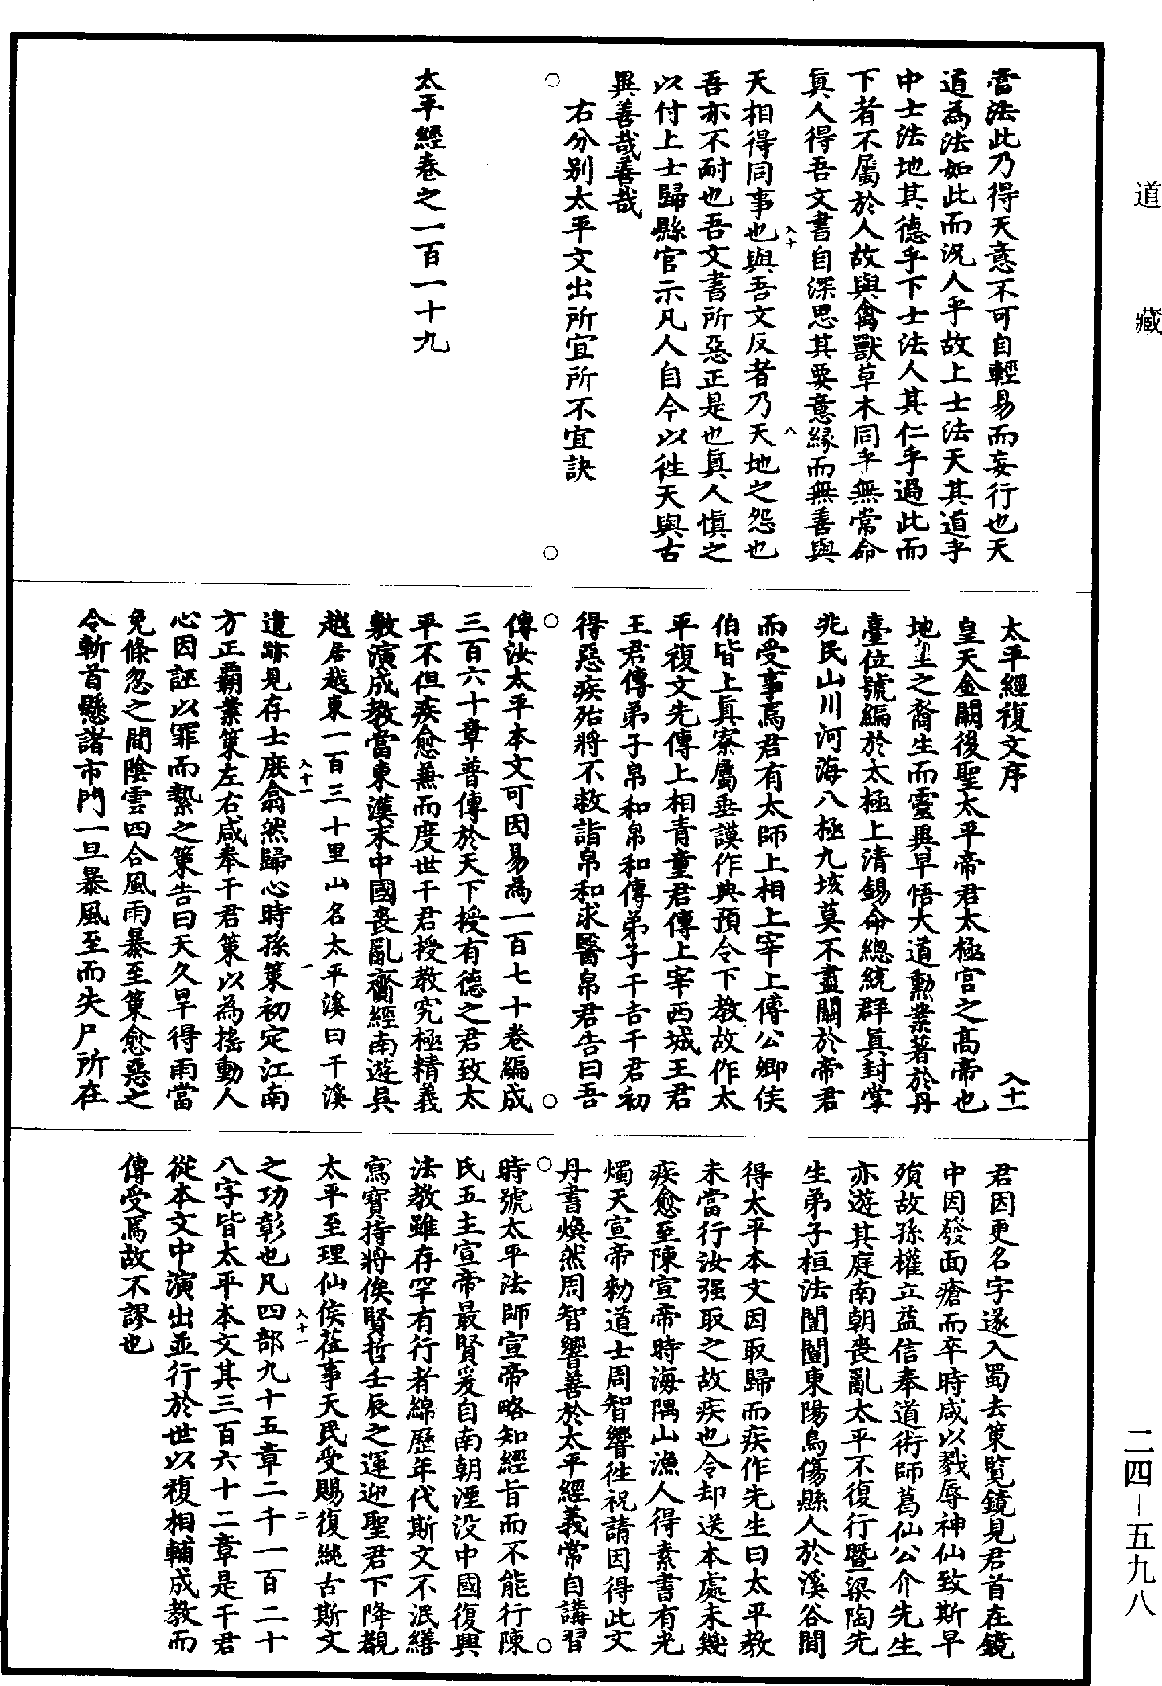 道藏
當法此乃得天意不可自輕易而妄行也天
道為法如此而況人乎故上士法天其道乎
中士法地其德乎下士法人其仁乎過此而
下者不屬於人故與禽獸草木同乎無常命
真人得吾文書自深思其要意緣而無善與
入十 八
天相得同事也與吾文反者乃天地之怨也
吾亦不耐也吾文書所惡正是也真人慎之
以付上士歸縣官示凡人自今以往天與古
異善哉善哉
右分別太平文出所宜所不宜訣
太平經卷之一百一十九
太平經複文序 入十一
皇天金闕後聖太平帝君太極宮之高帝也
地主之裔生而靈異早悟大道勳業著於丹
臺位號編於太極上清錫命總統群真封掌
兆民山川河海八極九垓莫不盡關於帝君
而受事焉君有太師上相上宰上傅公卿侯
伯皆上真寮屬垂謨作典預令下教故作太
平複文先傳上相青童君傳上宰西城王君
王君傳弟子帛和帛和傳弟子干吉干君初
得惡疾殆將不救詣帛和求醫帛君告曰吾
傳汝太平本文可因易為一百七十卷編成
三百六十章普傳於天下授有德之君致太
平不但疾愈兼而度世干君授教究極精義
敷演成教當東漢末中國喪亂齎經南遊吳
越居越東一百三十里山名太平溪曰干溪
入十一 一
遺跡見存士庶翕然歸心時孫策初定江南
方正霸業策左右咸奉干君策以為搖動人
心因誣以罪而縶之策告曰天久旱得雨當
免倏忽之間陰雲四合風雨暴至策愈惡之
令斬首懸諸市門一旦暴風至而失尸所在
君因更名字遂入蜀去策覽鏡見君首在鏡
中因發面瘡而卒時咸以戮辱神仙致斯早
殞故孫權立益信奉道術師葛仙公介先生
亦遊其庭南朝喪亂太平不復行暨梁陶先
生弟子桓法闓闓東陽烏傷縣人於溪谷間
得太平本文因取歸而疾作先生曰太平教
未當行汝强取之故疾也令却送本處未幾
疾愈至陳宣帝時海隅山漁人得素書有光
燭天宣帝勑道士周智響往祝請因得此文
丹書煥然周智響善於太平經義常自講習
時號太平法師宣帝略知經旨而不能行陳
氏五主宣帝最賢爰自南朝湮沒中國復興
法教雖存罕有行者綿歷年代斯文不泯繕
寫寶持將俟賢哲壬辰之運迎聖君下降覩
太平至理仙侯莅事天民受賜復純古斯文
入十一 二
之功彰也凡四部九十五章二千一百二十
八字皆太平本文其三百六十二章是干君
從本文中演出並行於世以複相輔成教而
傳受焉故不謬也
二四-五九八